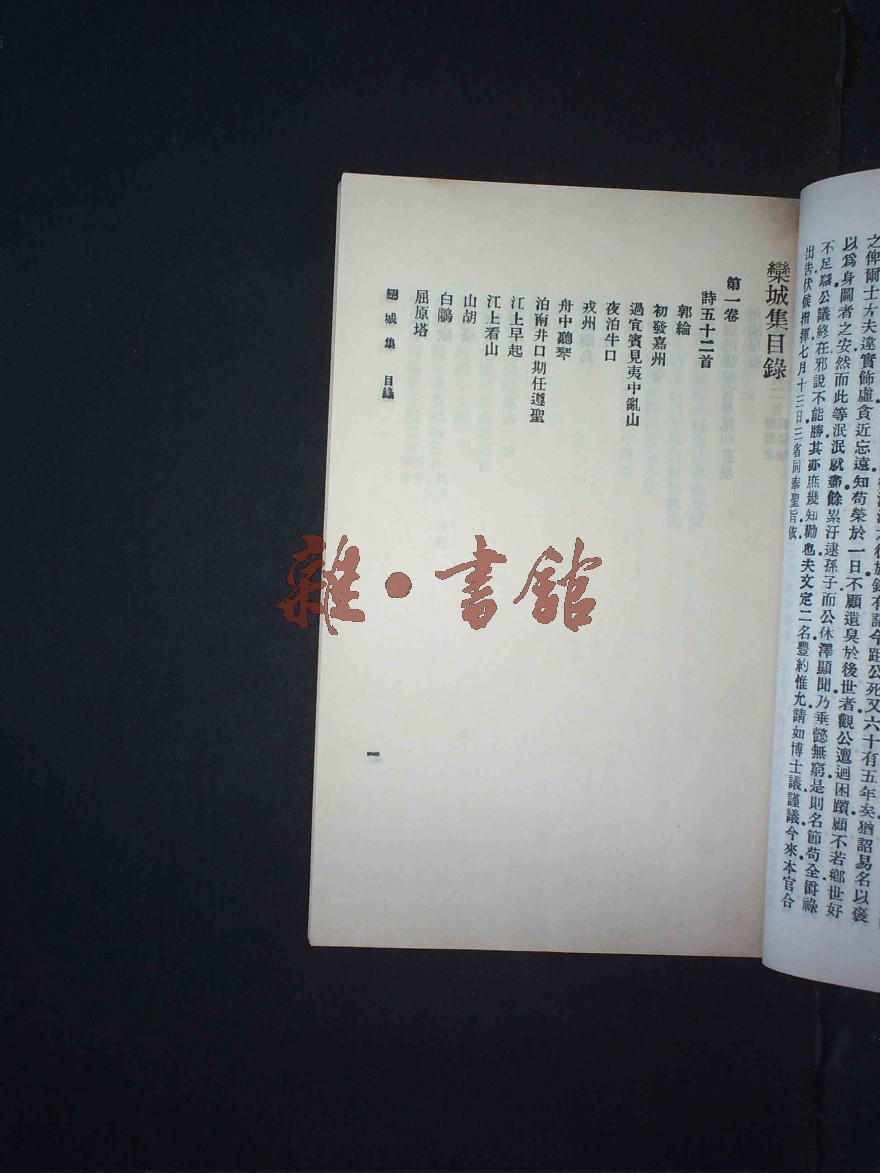 之俾爾士大夫遠實飾虛貪近忘遠知苟榮於一日不顧遺臭於後世者觀公邅迴困躓顧不若鄉世好
以爲身圖者之安然而此等泯泯就鄰餘累汙逮孫子而公休澤顯聞乃垂懿無窮是則名節苟全爵祿
不足驕公議終在邪說不能勝其亦庶幾知勸也夫文定二名豐約惟允請如博士議謹議今來本官合
出告伏候指揮七月十三日三省同奉聖旨依
欒城集目錄
第一卷
詩五十二首
郭綸
初發嘉州
過宜賓見夷中亂山
夜泊牛口
戎州
舟中聽琴
泊南井口期任遵聖
江上早起
江上看山
山胡
白鷴
屈原塔
欒城集 目錄
一
雜·書館